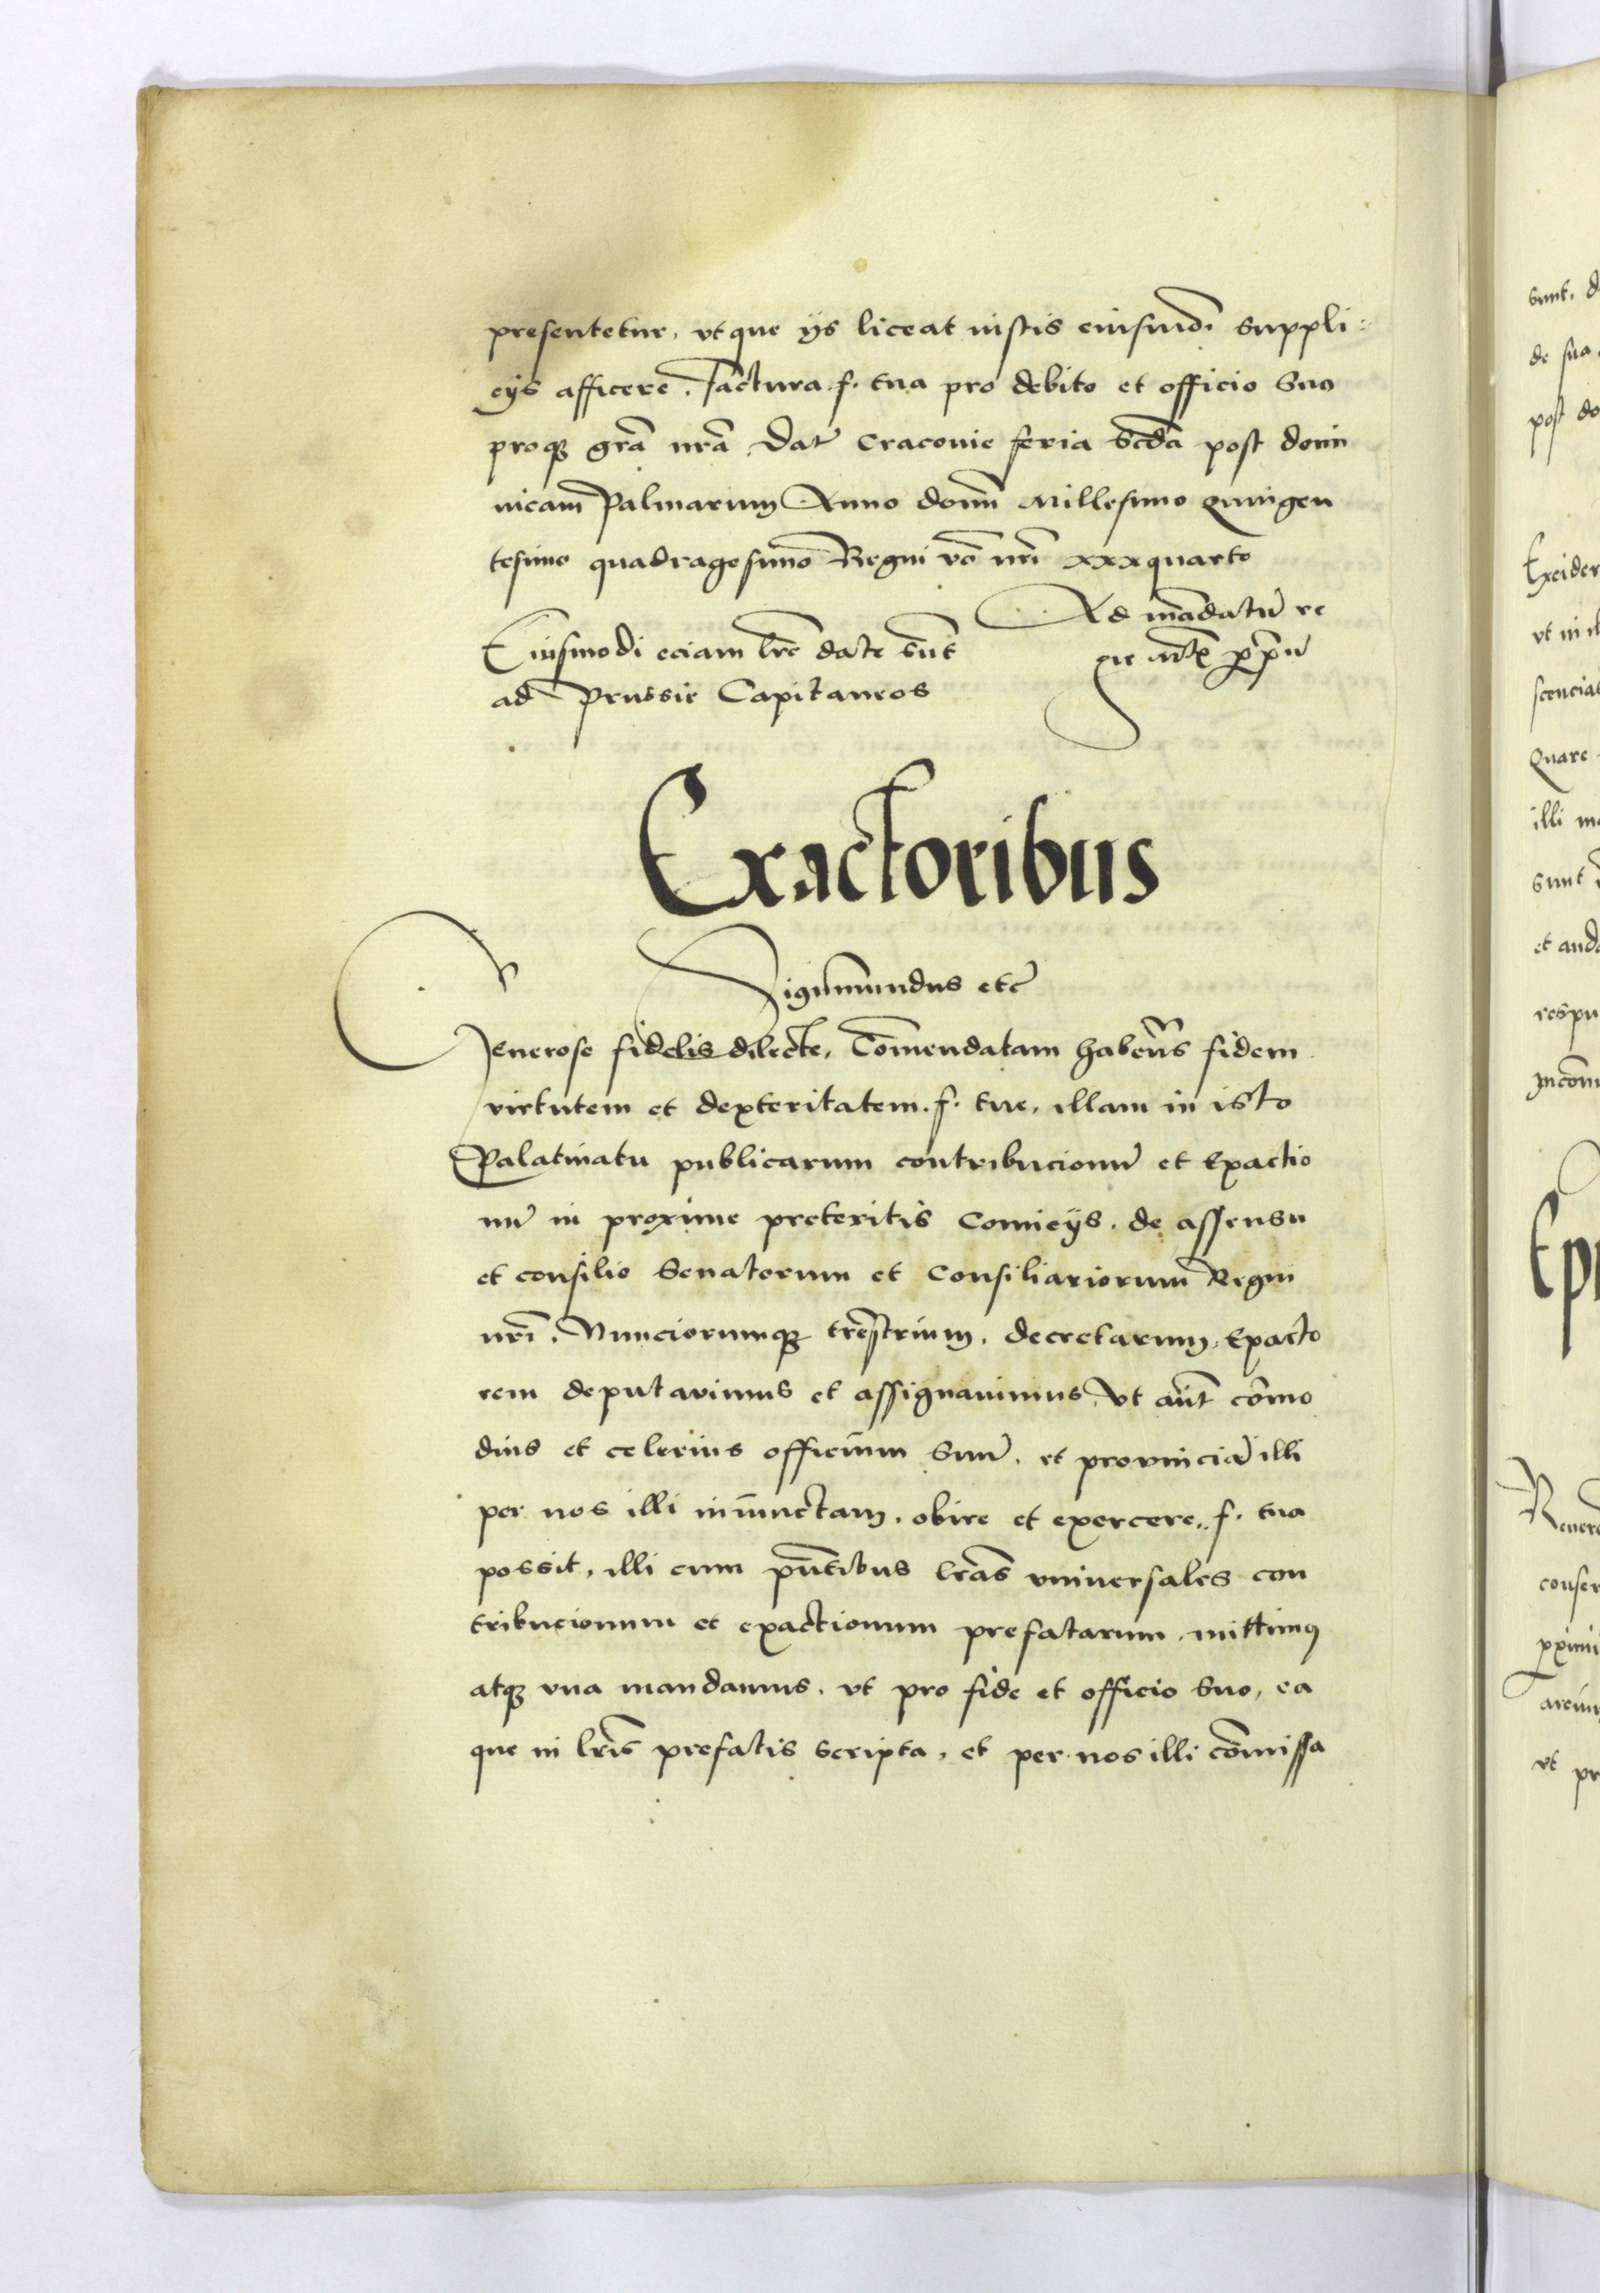 presentetur, vt que ijs liceat iustis eiusmdi suppli-
cijs afficere. factura f. tua pro debito et officio suo
proqȝ gra nra. Dat Cracouie feria scda post domi
nicam Palmarum Anno domi Millesimo quingen
tesimo quadragesimo Regni vo nri xxxquarto
Ad madatu re
Eiusmodi eciam lre date sut
ad Prussie Capitaneos
Exactoribus
Sigismundus etc
Generose fidelis dilecte, Comendatam habetes fidem
virtutem et dexteritatem f. tue, illam in isto
Palatinatu publicarum contribucionu et Exactio
nu in proxime preteritis Comicijs, de assensu
et consilio Senatorum et Consiliariorum Regni
nri, Nunciorumqȝ trestrium, decretarum, Exacto
rem deputauimus et assignauimus, Vt aut como
dius et celerius officium suu, et prouincia illi
per nos illi iniunctam, obire et exercere, f. tua
possit, illi cum pntibus lras vniuersales con
tribucionum et exactionum prefatarum, mittimus
atqȝ vna mandamus, vt pro fide et officio suo, ea
que in lris prefatis scripta, et per nos illi comissa
sunt, d
de sua
post do
Excider
vt in il
scencias
Quare
illi m
sunt
et auda
respu
Incom
Ep
Reuere
conser
pximi
vt pr